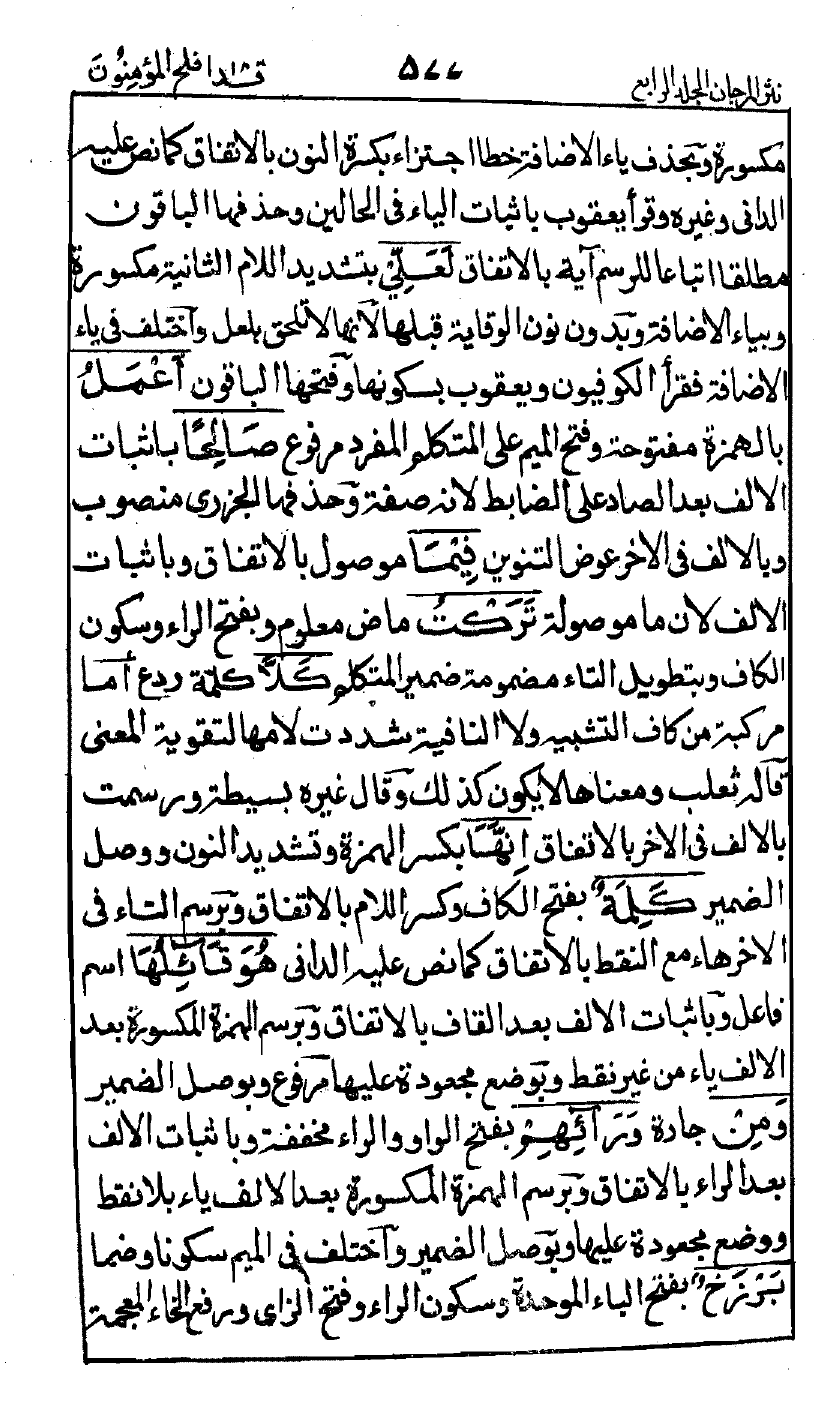 نثر المرجان المجلد الرابع ۵۷۷ قد افلح المؤمِنُونَ
مكسورة وبحذف ياء الاضافة خطا اجتزاء بكسرة النون بالاتفاق كما نص عليه
الدانى وغيره وقرأ يعقوب باثبات الياء فى الحالين وحذفها الباقون
مطلقا اتباعا للرسم آية بالاتفاق لَعَلِّيْ بتشديد اللام الثانية مكسورة
وبياء الاضافة وبدون نون الوقاية قبلها لانها لا تلحق بلعل واختلف فى ياء
الاضافة فقرأ الكوفيون ويعقوب بسكونها وفتحها الباقون أَعْمَلُ
بالهمزة مفتوحة وفتح الميم على المتكلم المفرد مرفوع صَالِحًا باثبات
الالف بعد الصاد على الضابط لانه صفة وحذفها الجزرى منصوب
وبالالف فى الاخر عوض التنوين فِيْمَا موصول بالاتفاق وباثبات
الالف لان ما موصولة تَرَكْتُ ماض معلوم وبفتح الراء وسكون
الكاف وبتطويل التاء مضمومة ضمير المتكلم كَلَّا كلمة ردع أما
مركبة من كاف التشبيه ولا النافية شددت لامها لتقوية المعنى
قاله ثعلب ومعناها لا يكون كذلك وقال غيره بسيطة ورسمت
بالالف فى الاخر بالاتفاق اِنَّهَا بكسر الهمزة وتشديد النون ووصل
الضمير كَلِمَةٌ بفتح الكاف وكسر اللام بالاتفاق وبرسم التاء فى
الاخر هاء مع النقط بالاتفاق كما نص عليه الدانى هُوَ قَائِلُهَا اسم
فاعل وباثبات الالف بعد القاف بالاتفاق وبرسم الهمزة المكسورة بعد
الالف ياء من غير نقط وبوضع مجعودة عليها مرفوع وبوصل الضمير
وَمِنْ جادة وَرَآئِهِمْ بفتح الواو والراء مخففة وباثبات الالف
بعد الراء بالاتفاق وبرسم الهمزة المكسورة بعد الالف ياء بلا نقط
ووضع مجعودة عليها وبوصل الضمير واختلف فى الميم سكونا وضما
بَرْزَخٌ بفتح الباء الموحدة وسكون الراء وفتح الزاى ورفع الخاء المعجمة